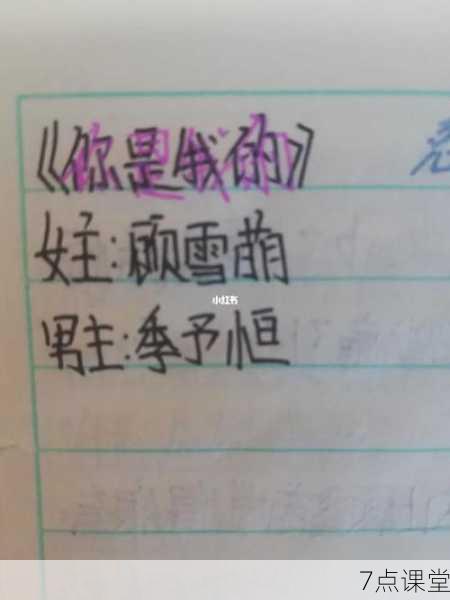 《你是我的》
女主:顾雪萌
小红书
男主:季予恒
7点课堂